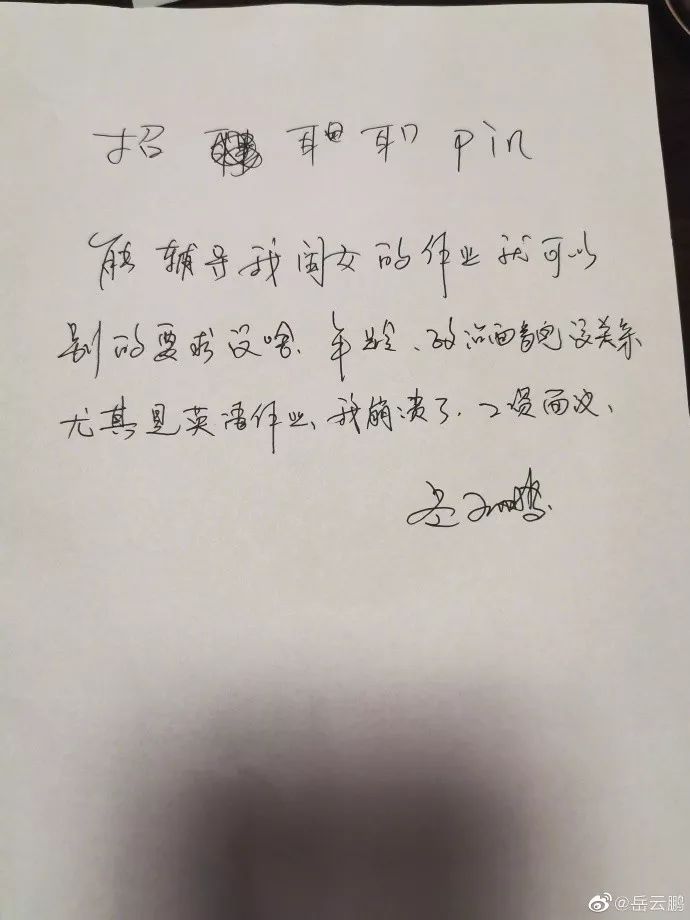 招 耳由 耳口 pin
能辅导我闺女的作业就可以
别的要求没啥、年龄、政治面貌没关系
尤其是英语作业、我崩溃了、工资面议、
岳云鹏
@岳云鹏